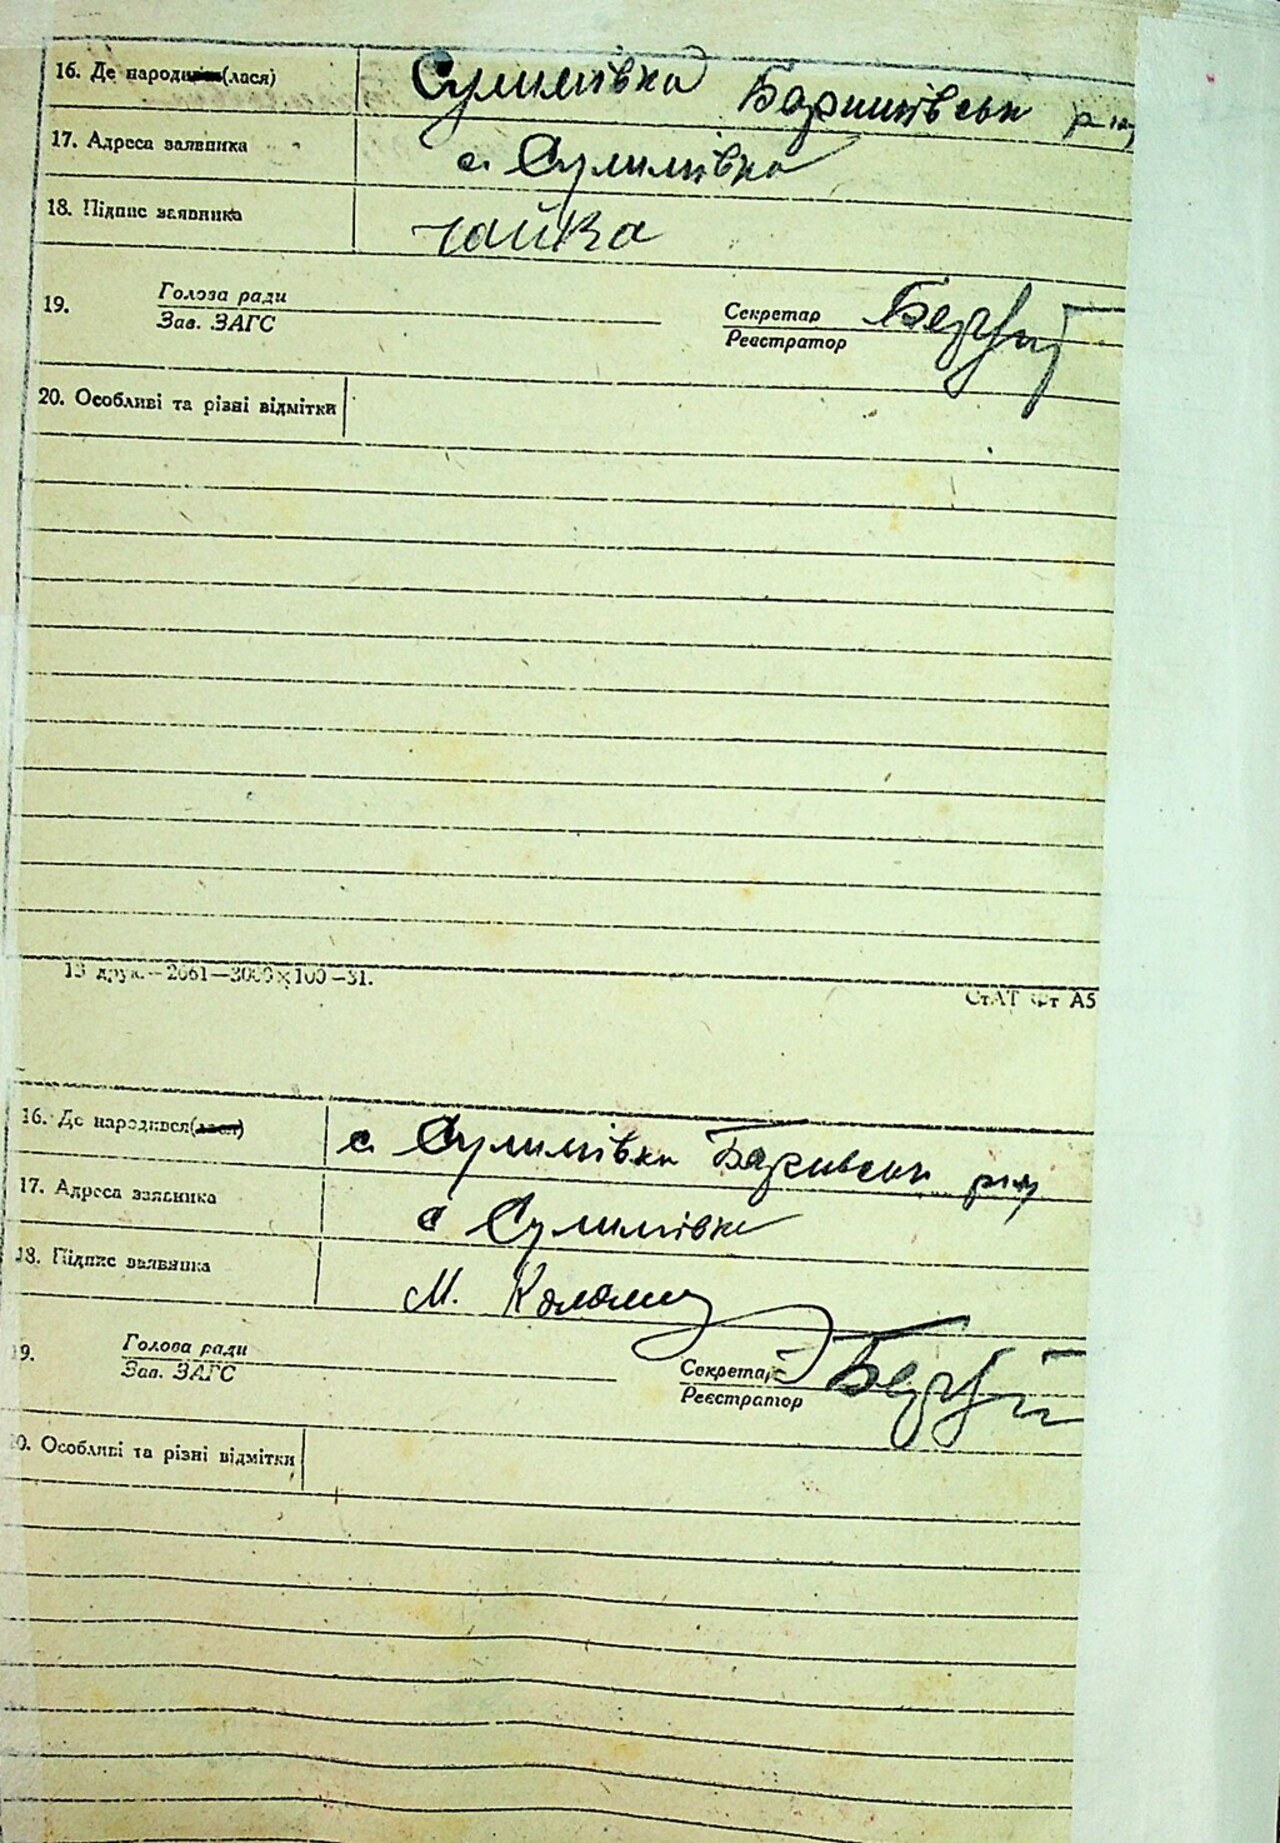 16. Де народився(лася) Сулимівка Баришівськ р-ну
17. Адреса заявника с. Сулимівка
18. Підпис заявника Чайка
19. Голова ради Секретар
Зав. ЗАГС Реєстратор
20. Особливі та різні відмітки
13 друк.—2661—3000×100—31.
СтАТ Фт А5
16. Де народився(лася) с. Сулимівка Баривськ р-ну
17. Адреса заявника с Сулимівка
18. Підпис заявника М. Коломиец
19. Голова ради Секретар
Зав. ЗАГС Реєстратор
20. Особливі та різні відмітки